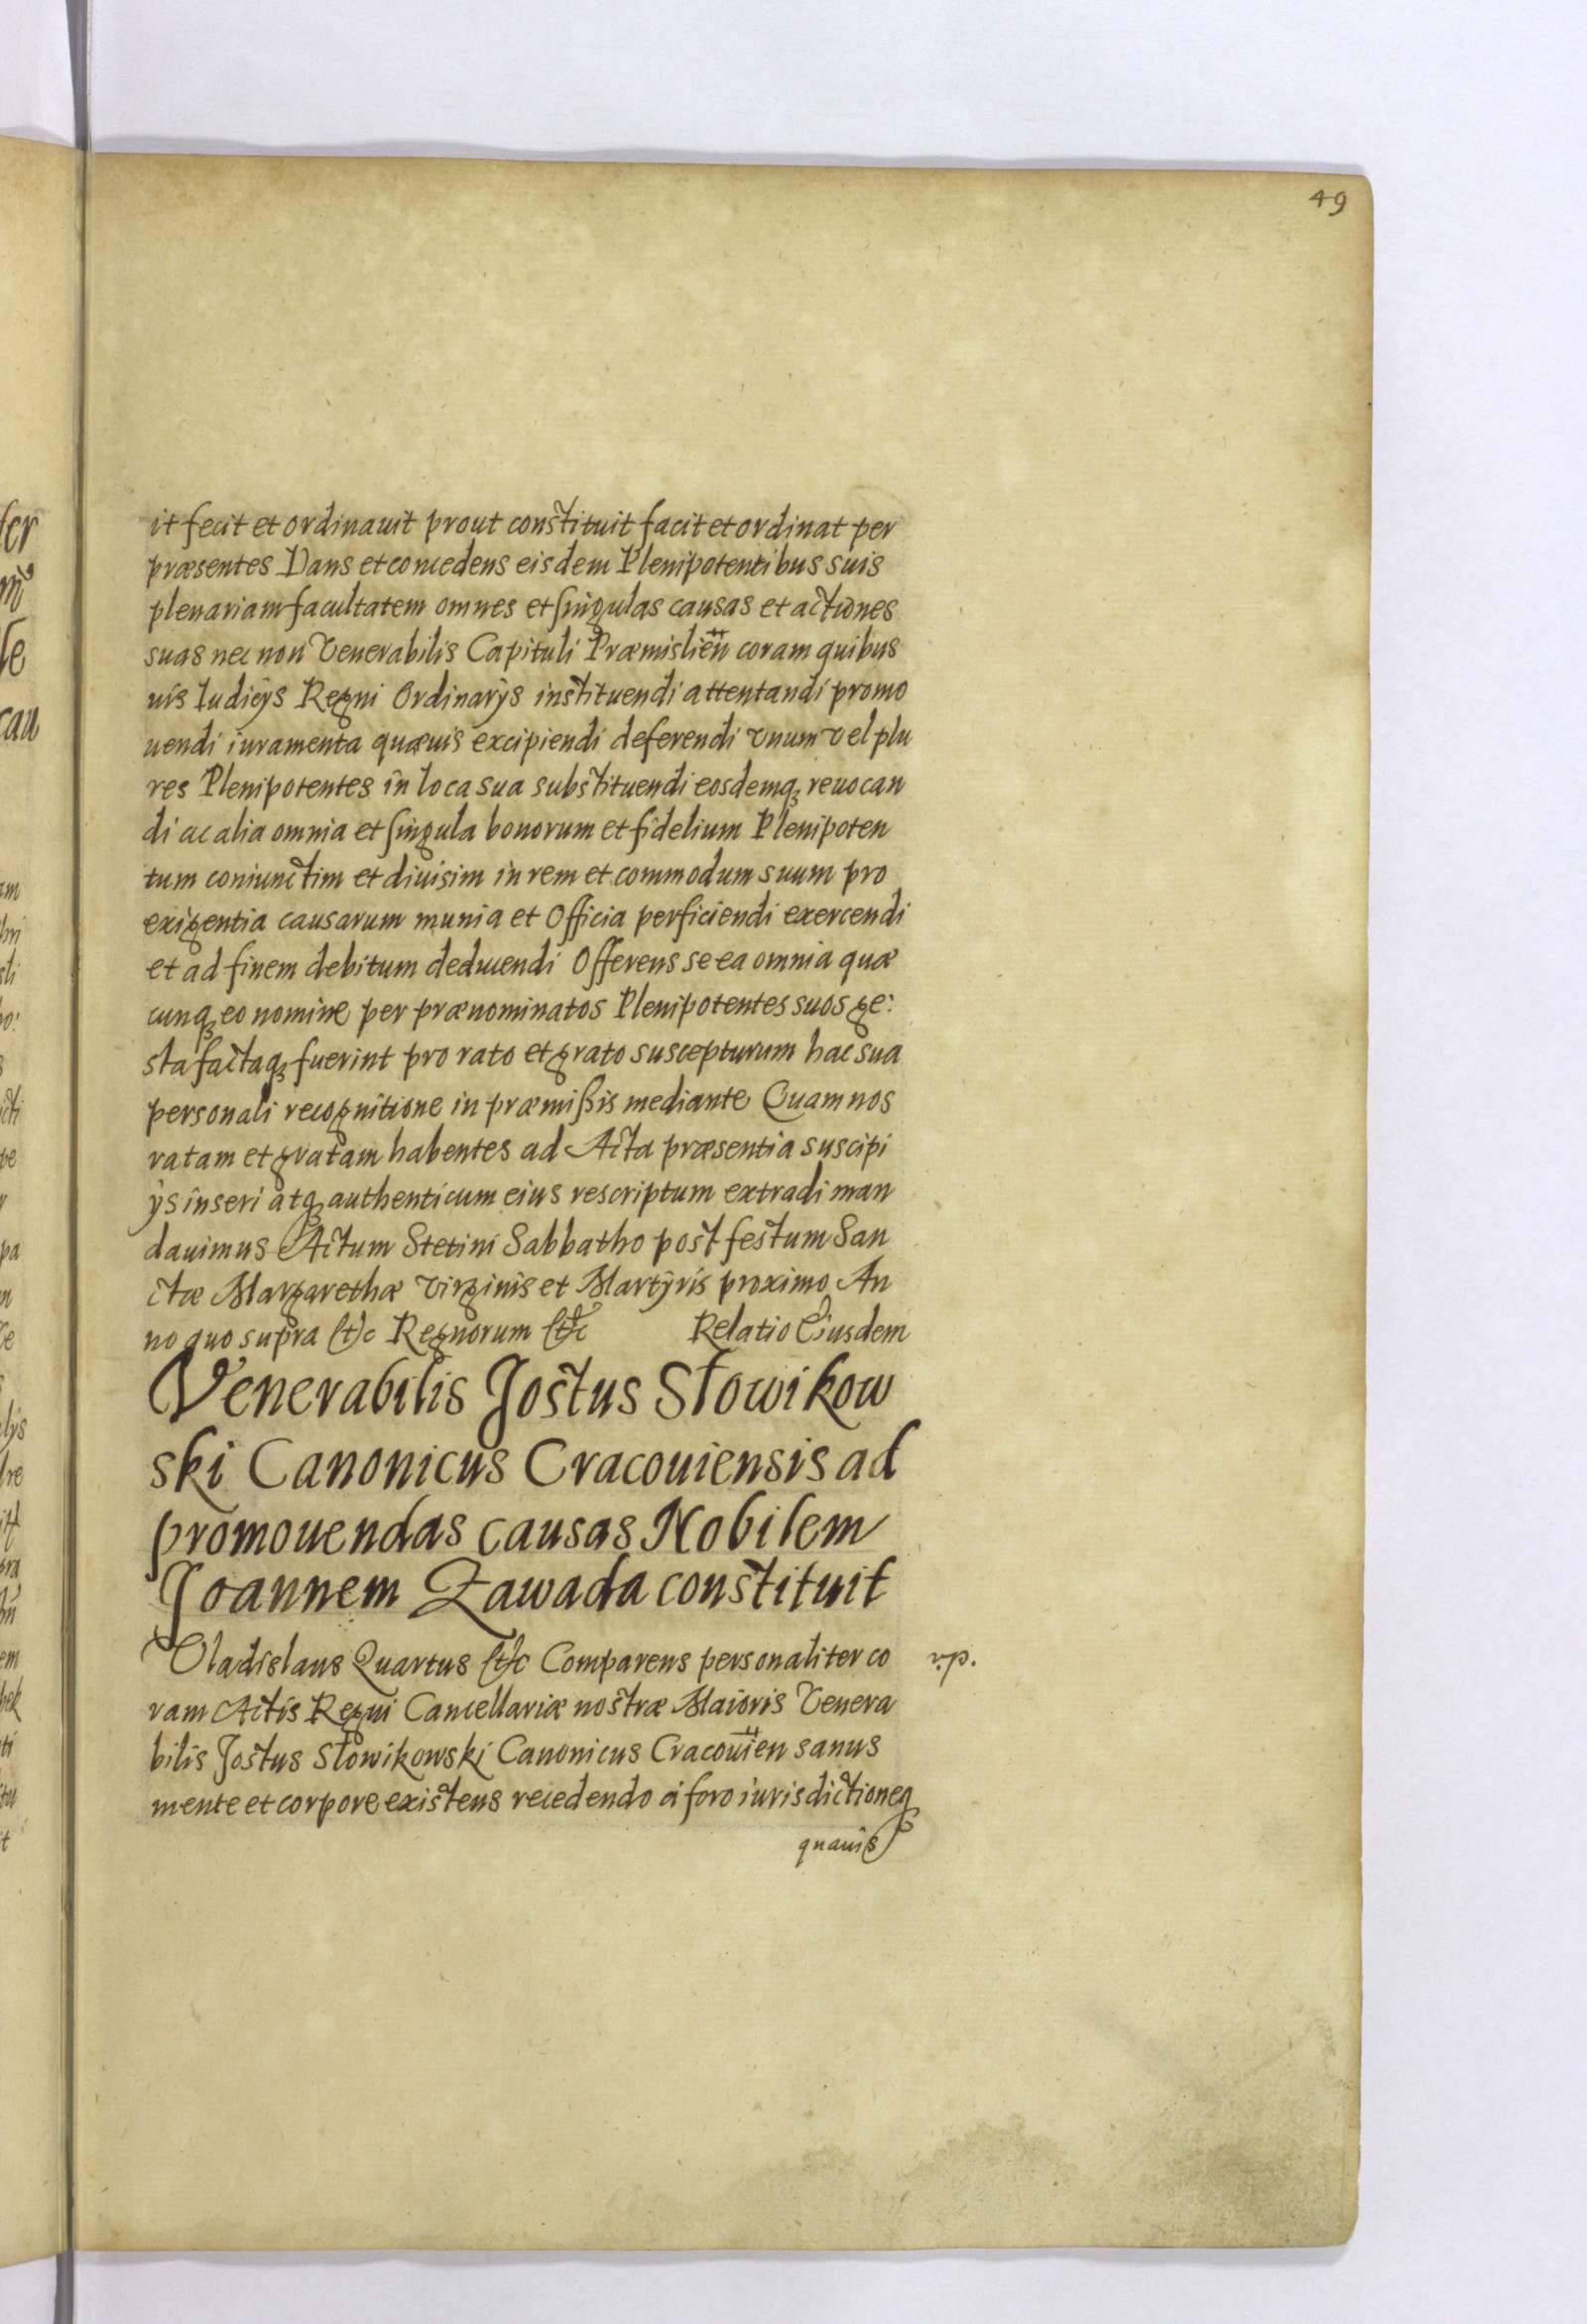 49
it fecit et ordinauit prout constituit facit et ordinat per
præsentes Dans et concedens eisdem Plenipotentibus suis
plenariam facultatem omnes et singulas causas et actiones
suas nec non Venerabilis Capituli Præmislien̄ coram quibus
uis Iudicÿs Regni Ordinarÿs instituendi attentandi promo
uendi iuramenta quæuis excipiendi deferendi vnum vel plu
res Plenipotentes in loca sua substituendi eosdemq₃ reuocan
di ac alia omnia et singula bonorum et fidelium Plenipoten
tum coniunctim et diuisim in rem et commodum suum pro
exigentia causarum munia et Officia perficiendi exercendi
et ad finem debitum deducendi Offerens se ea omnia quæ
cunq₃ eo nomine per prænominatos Plenipotentes suos ge:
sta factaq₃ fuerint pro rato et grato suscepturum hac sua
personali recognitione in præmißis mediante Quam nos
ratam et gratam habentes ad Acta præsentia suscipi
ÿs inseri atq₃ authenticum eius rescriptum extradi man
dauimus Actum Stetini Sabbatho post festum San
ctæ Margarethæ Virginis et Martÿris proximo An
no quo supra (t)c Regnorum (t)c Relatio Eiusdem
Venerabilis Jostus Słowikow
ski Canonicus Cracouiensis ad
promouendas causas Nobilem
Joannem Zawada constituit
Vladislaus Quartus (t)c Comparens personaliter co
v.p.
ram Actis Regni Cancellariæ nostræ Maioris Venera
bilis Jostus Słowikowski Canonicus Cracouien̄ sanus
mente et corpore existens recedendo à foro iurisdictioneq₃
quauis